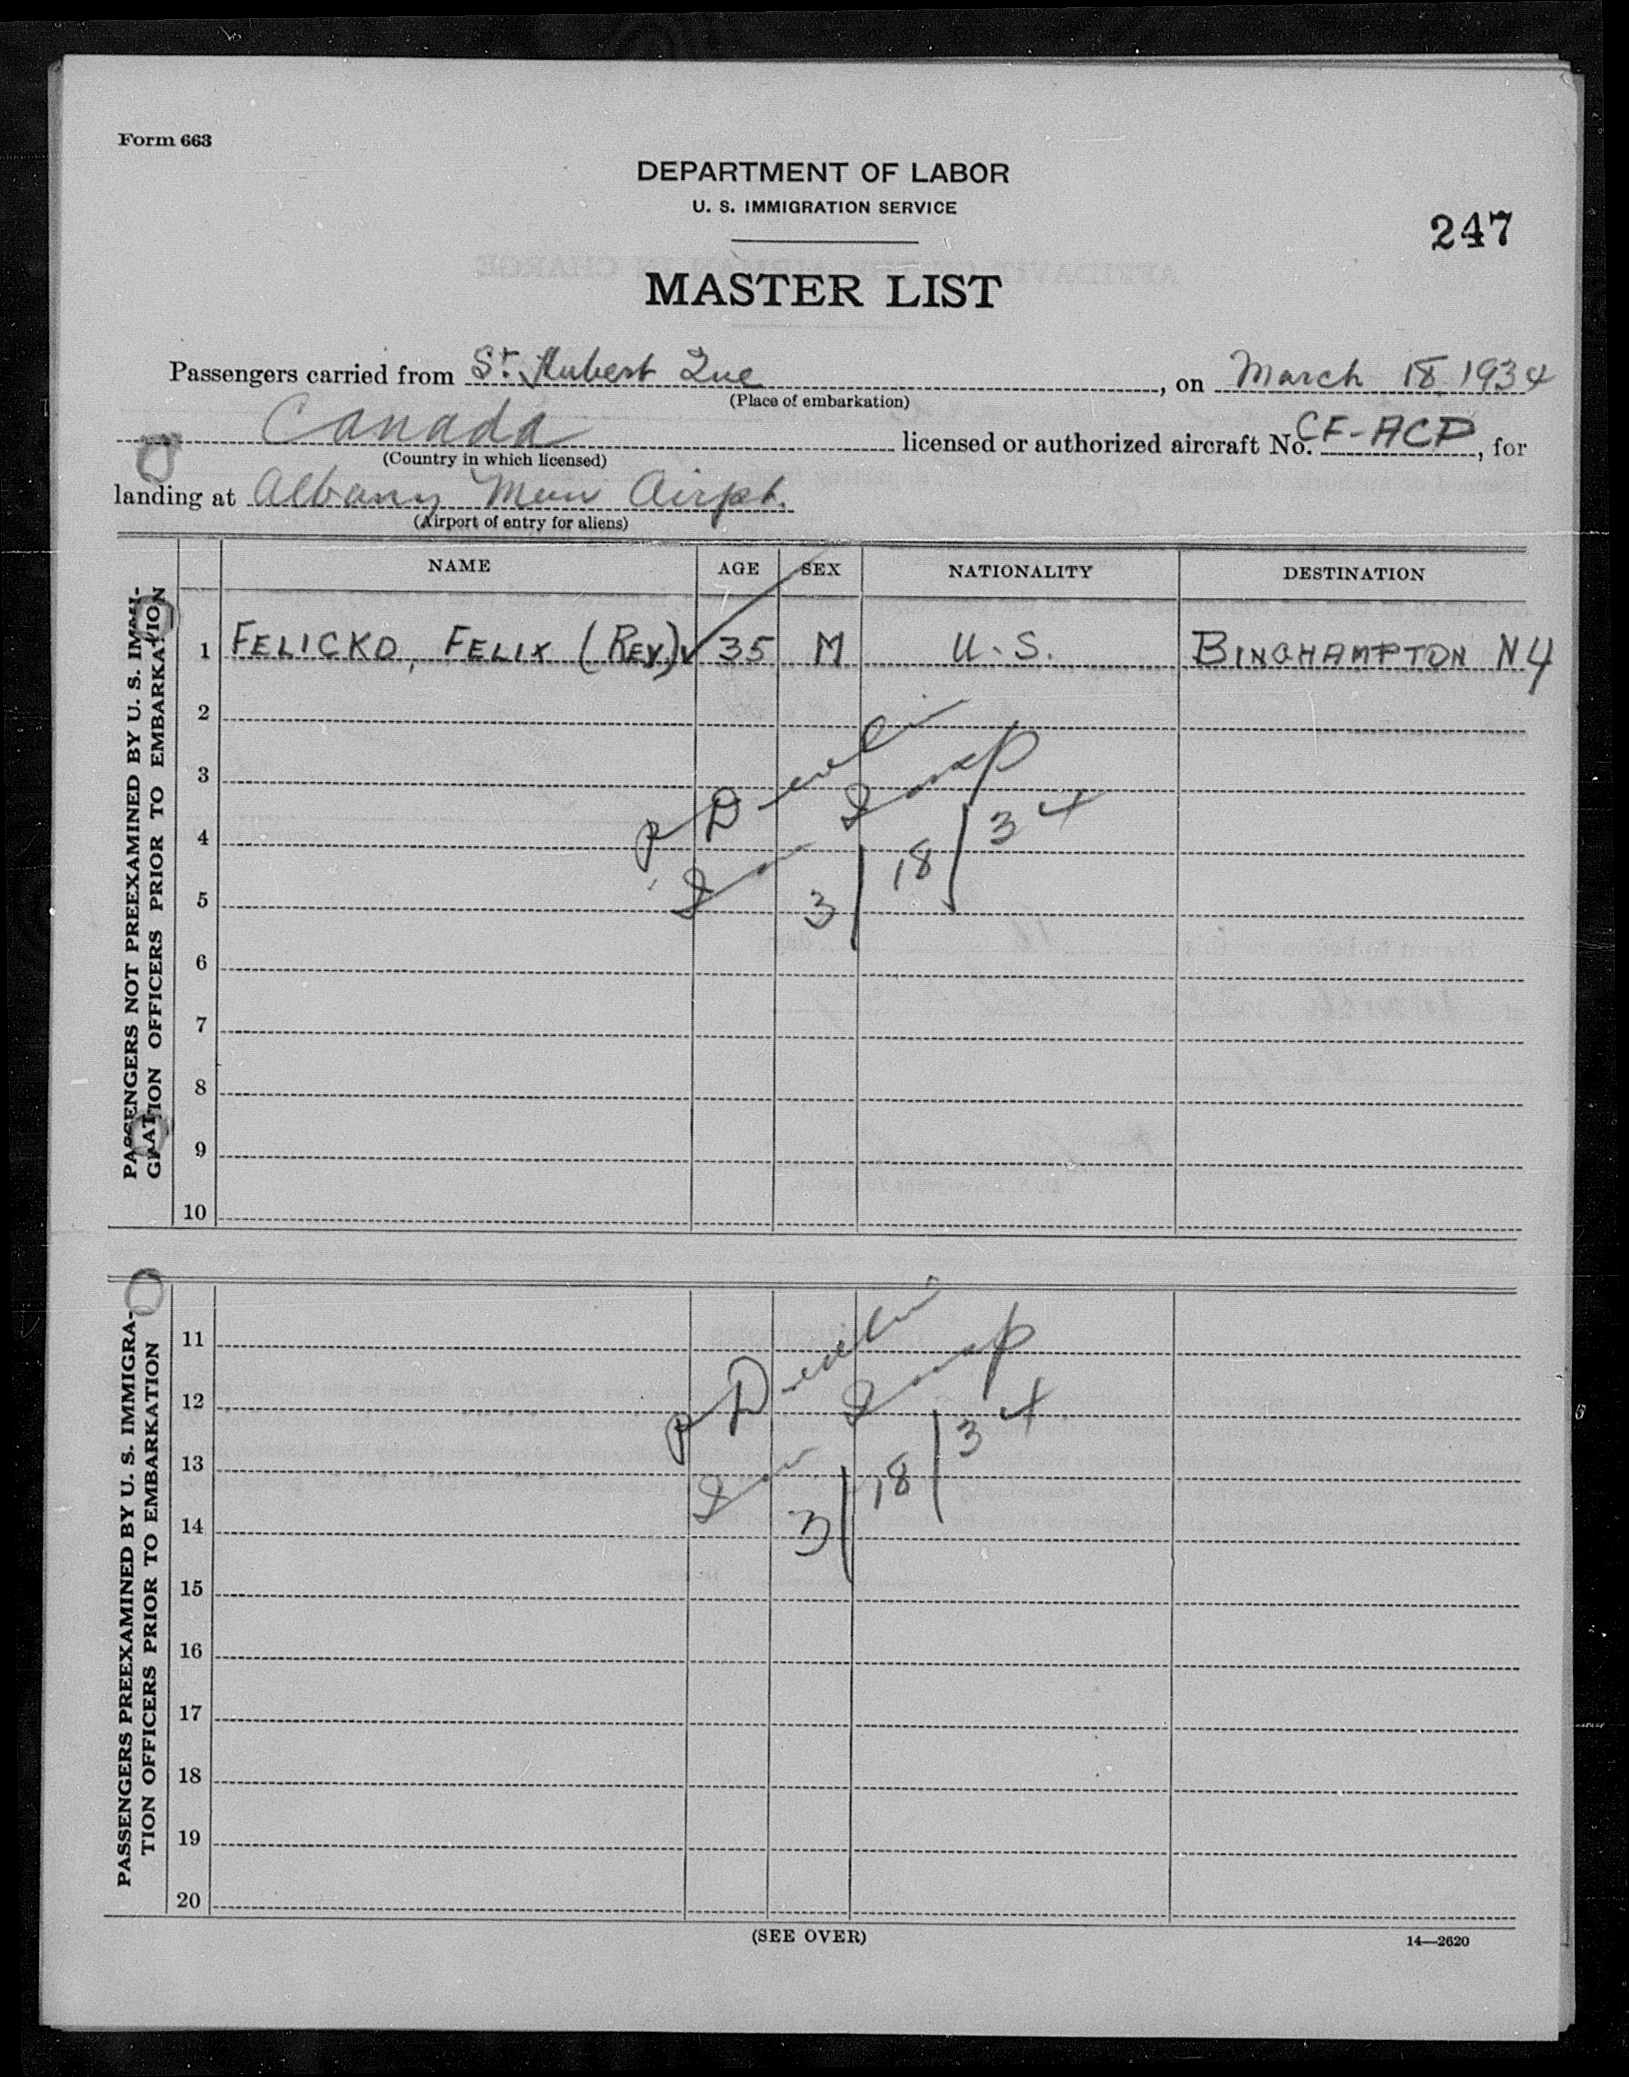 Form 663
DEPARTMENT OF LABOR
U. S. IMMIGRATION SERVICE
247
MASTER LIST
Passengers carried from St. Hubert Que, on March 18 1934
(Place of embarkation)
Canada licensed or authorized aircraft No. CF-ACP, for
(Country in which licensed)
landing at Albany Mun Airpt.
(Airport of entry for aliens)
NAME AGE SEX NATIONALITY DESTINATION
PASSENGERS NOT PREEXAMINED BY U. S. IMMI-
GRATION OFFICERS PRIOR TO EMBARKATION
1 FELICKO, FELIX (REV.) 35 M U.S. BINGHAMPTON NY
2
3
4
5
6
7
8
9
10
3/18/34
PASSENGERS PREEXAMINED BY U. S. IMMIGRA-
TION OFFICERS PRIOR TO EMBARKATION
11
12
13
14
15
16
17
18
19
20
3/18/34
(SEE OVER)
14—2620